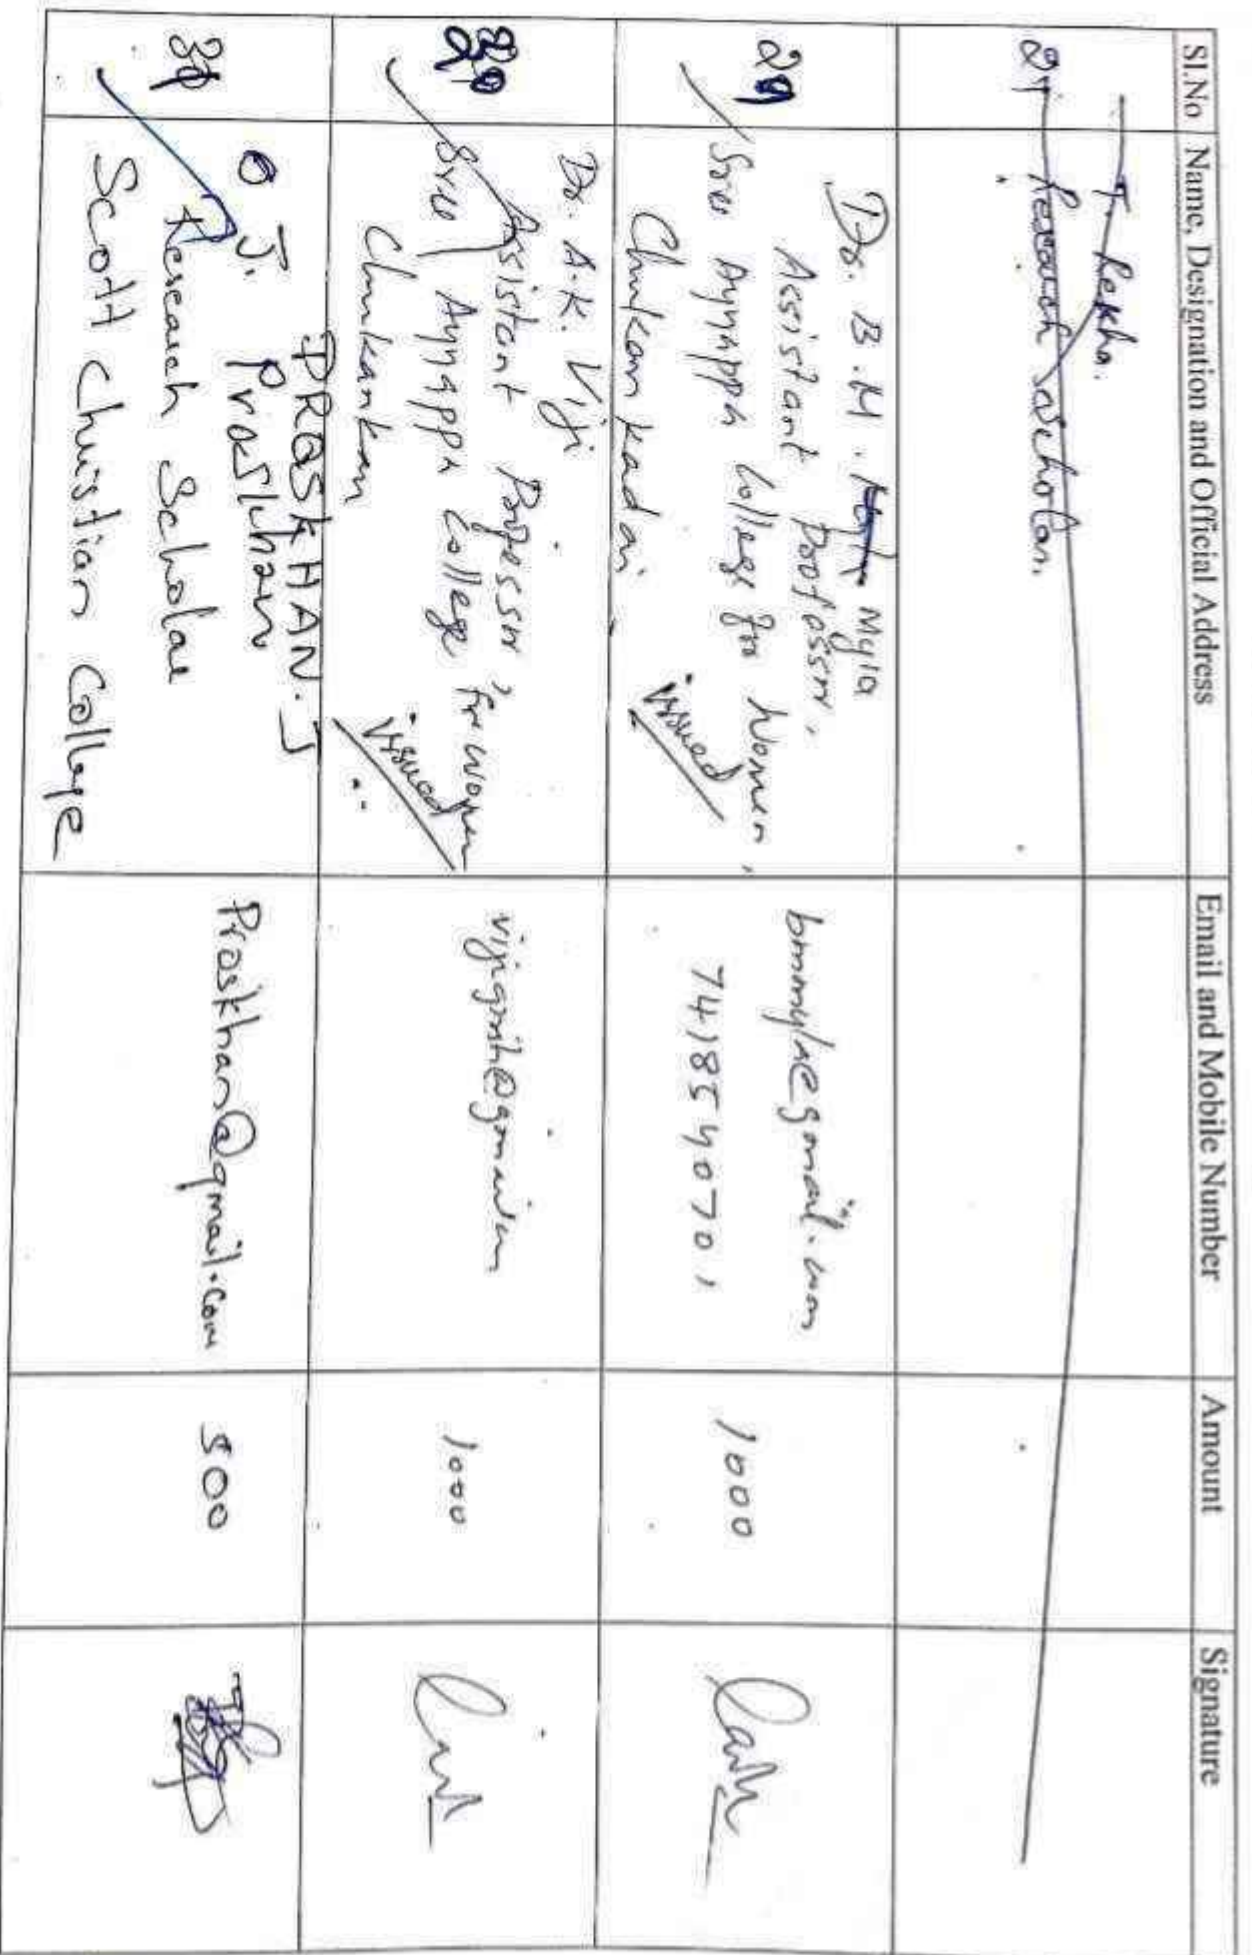 Sl.No Name, Designation and Official Address Email and Mobile Number Amount Signature
T. Rekha.
Research scholar.
29 Dr. B.M. Myla
Assistant Professor,
Sree Ayyappa College for Women,
Chunkankadai
issued
bmmyla@gmail.com
7418540701
1000
30 Dr. A.K. Viji
Assistant Professor,
Sree Ayyappa College for women
Chunkankan
issued
1000
PRASKHAN. J
J. Praskhan
Research Scholar
Scott Christian College
Praskhan@gmail.com
500